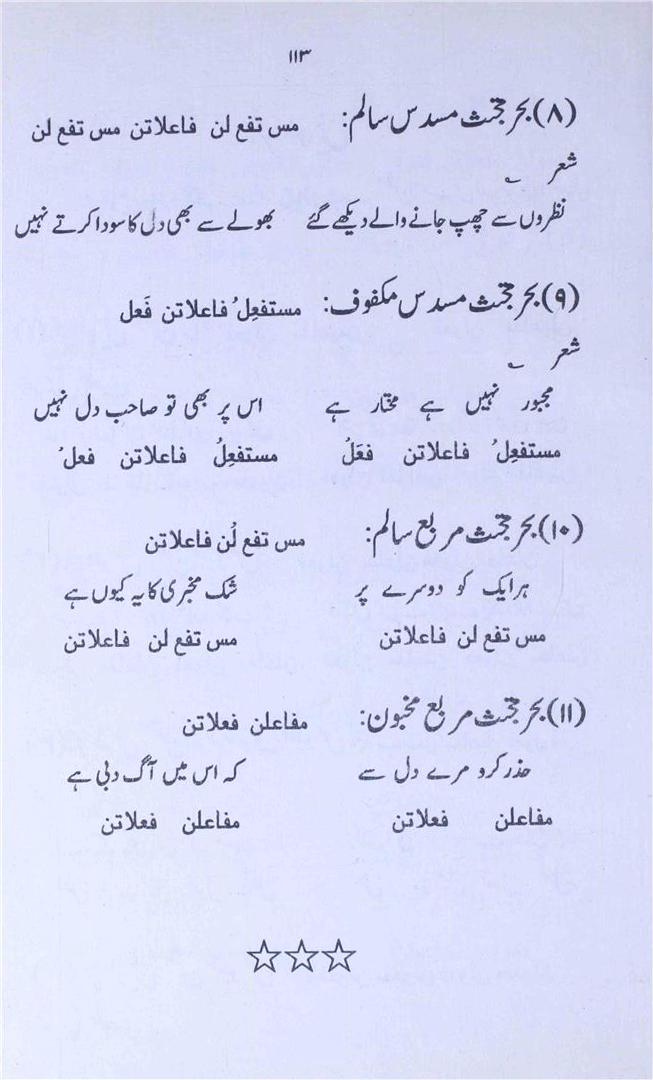 ۱۱۳
(۸) بحر مجتث مسدس سالم: مس تفع لن فاعلاتن مس تفع لن
شعر ؎
نظروں سے چھپ جانے والے دیکھے گئے بھولے سے بھی دل کا سودا کرتے نہیں
(۹) بحر مجتث مسدس مکفوف: مستفعِلُ فاعلاتن فَعل
شعر ؎
مجبور نہیں ہے مختار ہے اس پر بھی تو صاحبِ دل نہیں
مستفعِلُ فاعلاتن فعَلُ مستفعِلُ فاعلاتن فعلُ
(۱۰) بحر مجتث مربع سالم: مس تفع لُن فاعلاتن
ہر ایک کو دوسرے پر شک مخبری کا یہ کیوں ہے
مس تفع لن فاعلاتن مس تفع لن فاعلاتن
(۱۱) بحر مجتث مربع مخبون: مفاعلن فعلاتن
حذر کرو مرے دل سے کہ اس میں آگ دبی ہے
مفاعلن فعلاتن مفاعلن فعلاتن
☆☆☆